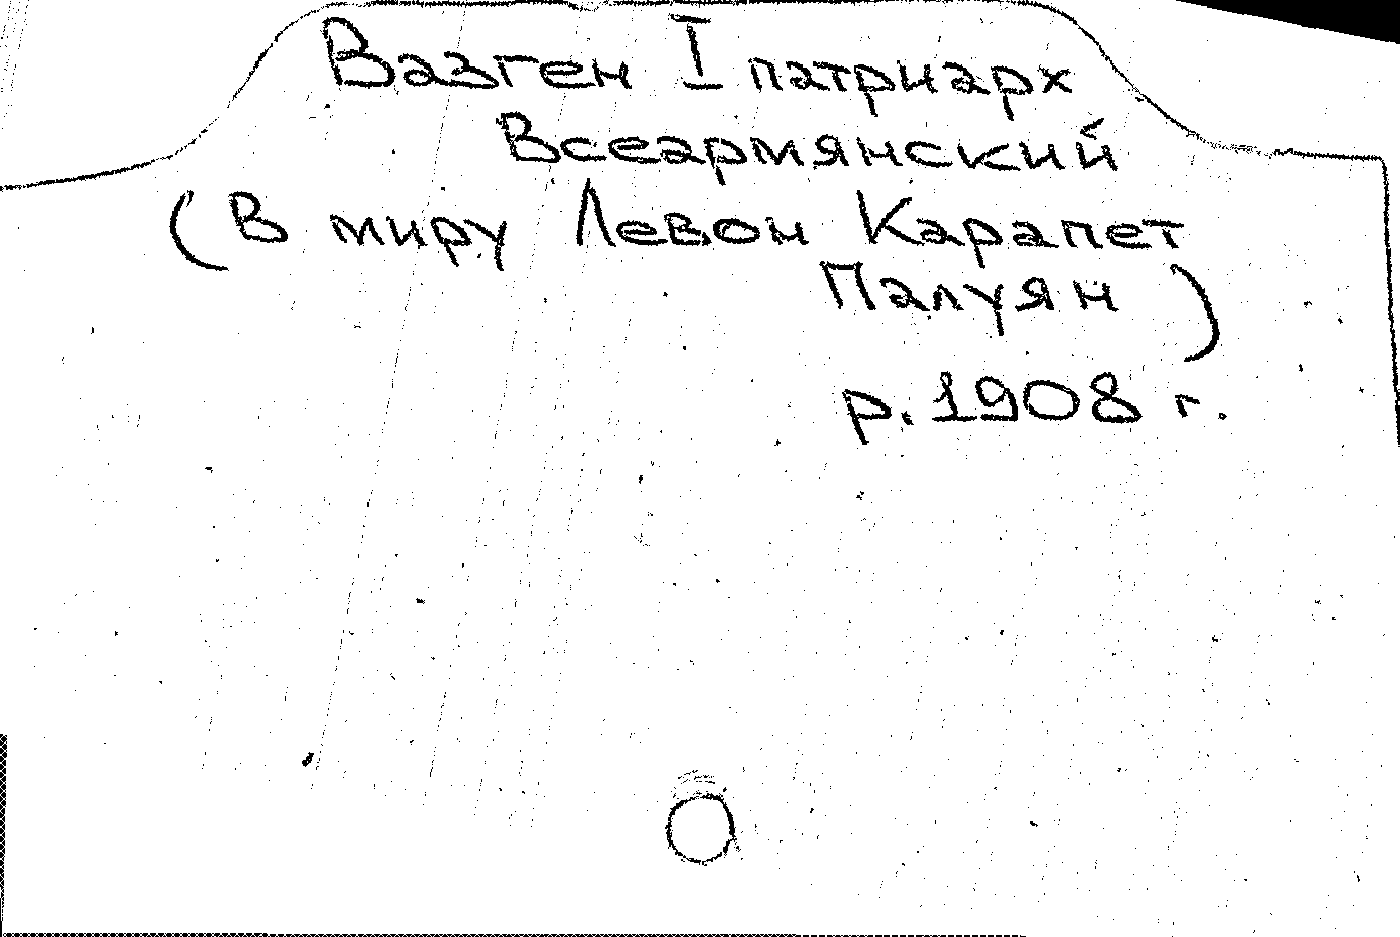 Вазген I патриарх
Всеармянский
(В миру Левон Карапет
Палуян)
р. 1908 г.